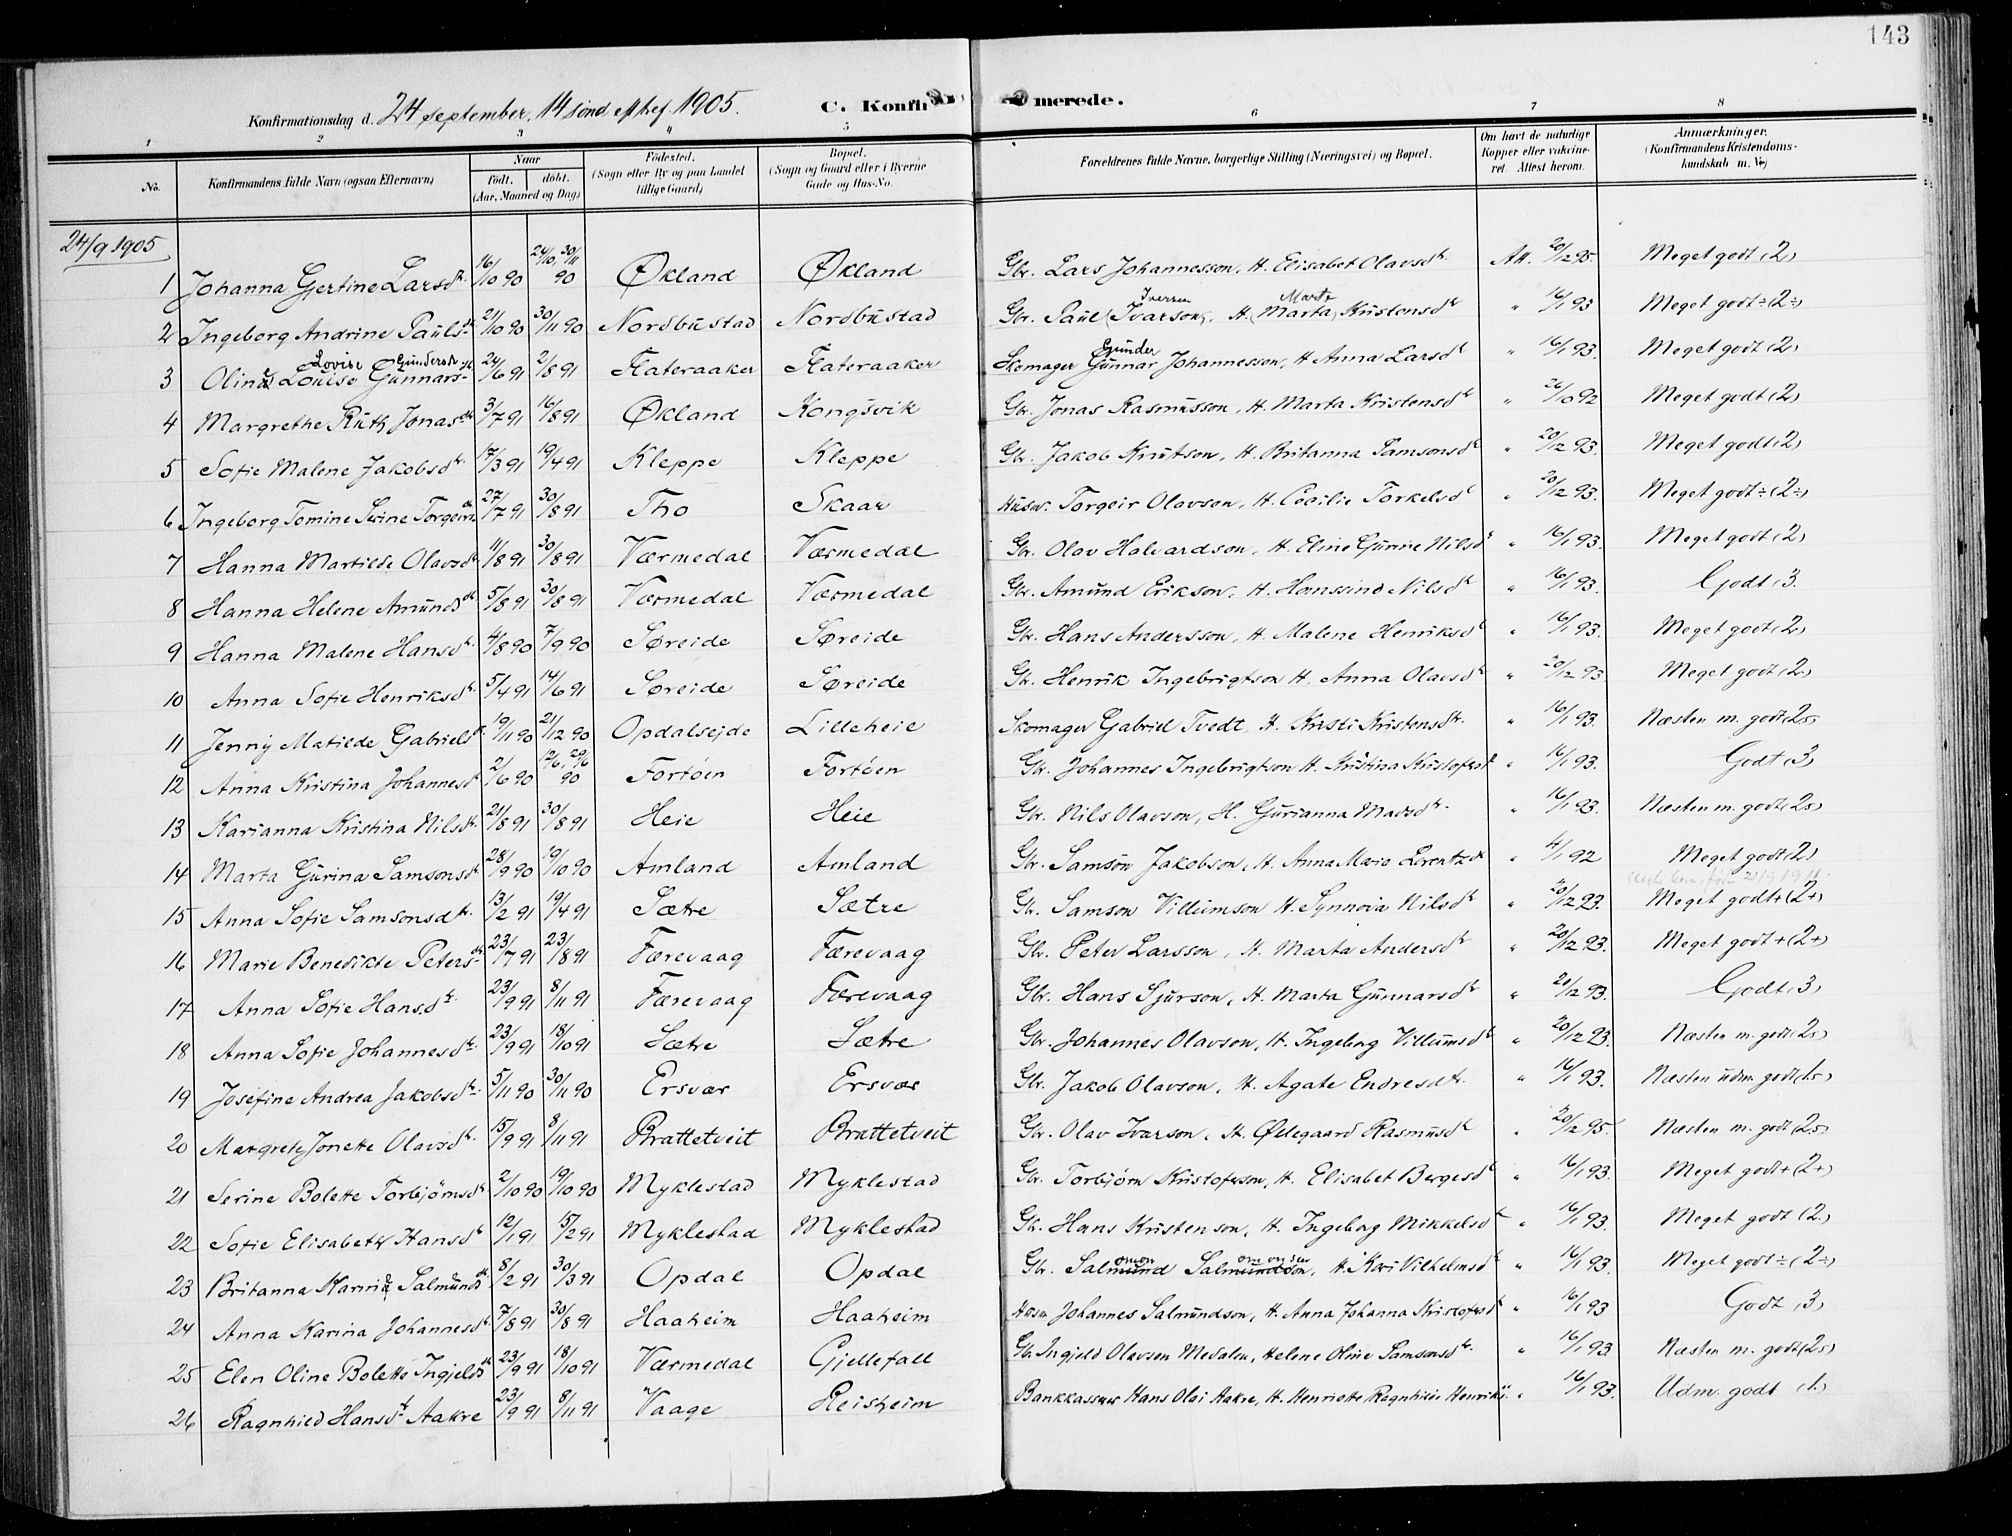 143
Konfirmationsdag d. 24 september, 14 sönd. eft. tref. 1905.
C. Konfirmerede.
1 2 3 4 5 6 7 8
No.
Konfirmandens fulde Navn (ogsaa Efternavn)
Naar
födt. döbt.
(Aar, Maaned og Dag)
Födested.
(Sogn eller By og paa Landet tillige Gaard)
Bopæl.
(Sogn og Gaard eller i Byerne Gade og Hus-No.
Forældrenes fulde Navne, borgerlige Stilling (Næringsvei) og Bopæl.
Om havt de naturlige Kopper eller vaccineret. Attest herom.
Anmærkninger.
(Konfirmandens Kristendomskundskab m. v.)
24/9 1905
1 Johanna Gjertine Larsdtr. 16/10 90 24/10, 30/11 90 Økland Økland Gbr. Lars Johannesson, H. Elisabet Olavsdtr Att. 20/12 95. Meget godt (2)
2 Ingeborg Andrine Paulsdtr. 21/10 90 30/11 90 Nordbustad Nordbustad Gbr. Paul (Ivarson) Iversen, H. (Marta) Marte Kristensdtr " 16/1 93 Meget godt ÷ (2÷)
3 Oline Louise Lovise Gunnarsdtr Gundersdtr 24/6 91 2/8 91 Flateraaker Flateraaker Skomager Gunnar Gunder Johannesson, H. Anna Larsdtr " 16/1 93. Meget godt (2)
4 Margrethe Ruth Jonasdtr 3/7 91 16/8 91 Økland Kongsvik Gbr. Jonas Rasmusson, H. Marta Kristensdtr " 26/10 92 Meget godt (2)
5 Sofie Malene Jakobsdtr. 17/3 91 19/4 91 Kleppe Kleppe Gbr. Jakob Knutson, H. Britanna Samsonsdtr " 20/12 93. Meget godt (2)
6 Ingeborg Tomine Serine Torgeirsdtr 27/7 91 30/8 91 Tho Skaar Husm. Torgeir Olavson, H. Cecilie Torkelsdtr " 20/12 93. Meget godt ÷ (2÷)
7 Hanna Martilde Olavsdtr 11/8 91 30/8 91 Værmedal Værmedal Gbr. Olav Halvardson, H. Eline Gurine Nilsdtr " 16/1 93. Meget godt (2)
8 Hanna Helene Amundsdtr 5/8 91 30/8 91 Værmedal Værmedal Gbr. Amund Erikson, H. Hanssine Nilsdtr " 16/1 93. Godt (3.
9 Hanna Malene Hansdtr. 4/8 90 7/9 90 Søreide Søreide Gbr. Hans Andersson, H. Malene Henriksdtr " 16/1 93. Meget godt (2)
10 Anna Sofie Henriksdtr. 5/4 91 14/6 91 Søreide Søreide Gbr. Henrik Ingebrigtson H. Anna Olavsdtr " 20/12 93 Meget godt (2)
11 Jenny Matilde Gabrielsdtr. 19/11 90 21/12 90 Opdalsejde Lilleheie Skomager Gabriel Tvedt, H. Kristi Kristensdtr. " 16/1 93. Næsten m. godt (2,5)
12 Anna Kristina Johannesdtr 2/6 90 12/6, 29/6 90 Fortøen Fortøen Gbr. Johannes Ingebrigtson H. Kristina Kristofersdtr " 16/1 93. Godt (3)
13 Karianna Kristina Nilsdtr. 21/8 91 30/8 91 Heie Heie Gbr. Nils Olavson, H. Gurianna Madsdtr. " 16/1 93. Næsten m. godt (2,5)
14 Marta Gurina Samsonsdtr 28/9 90 19/10 90 Amland Amland Gbr. Samson Jakobson, H. Anna Maria Lorentzdtr " 4/1 92 Meget godt (2)
15 Anna Sofie Samsonsdtr. 13/2 91 19/4 91 Sætre Sætre Gbr. Samson Villumson H. Synnøva Nilsdtr " 20/12 93. Meget godt + (2+)
16 Marie Benedikte Petersdtr 23/7 91 23/8 91 Færevaag Færevaag Gbr. Peter Larsson, H. Marta Andersdtr " 20/12 93. Meget godt + (2+)
17 Anna Sofie Hansdtr. 23/9 91 8/11 91 Færevaag Færevaag Gbr. Hans Sjurson, H. Marta Gunnarsdtr " 20/12 93. Godt (3)
18 Anna Sofie Johannesdtr. 23/9 91 18/10 91 Sætre Sætre Gbr. Johannes Olavson, H. Ingeborg Villumsdtr " 20/12 93. Næsten m. godt (2,5)
19 Josefine Andrea Jakobsdtr. 5/11 90 30/11 90 Ersvær Ersvær Gbr. Jakob Olavson, H. Agate Endresdtr. " 16/1 93. Næsten udm. godt (1,5)
20 Margrete Jonette Olavsdtr. 15/9 91 8/11 91 Brattetveit Brattetveit Gbr. Olav Ivarson, H. Ødegaard Rasmusdtr " 20/12 95. Næsten m. godt (2,5)
21 Serine Bolette Torbjørnsdtr 2/10 90 19/10 90 Myklestad Myklestad Gbr. Torbjørn Kristoferson, H. Elisabet Bergesdtr " 16/1 93. Meget godt + (2+)
22 Sofie Elisabeth Hansdtr 12/1 91 15/2 91 Myklestad Myklestad Gbr. Hans Kristenson, H. Ingeborg Mikkelsdtr " 16/1 93. Meget godt (2.)
23 Britanna Karine Salmundsdtr 8/2 91 30/3 91 Opdal Opdal Gbr. Salmund omon Salmundson omonsen, H. Kari Vilhelmsdtr " 16/1 93. Meget godt ÷ (2÷)
24 Anna Karina Johannesdtr 7/8 91 30/8 91 Haaheim Haaheim Husm. Johannes Salmundson, H. Anna Johanna Kristofersdtr " 16/1 93 Godt (3)
25 Elen Oline Bolette Ingjeldsdtr 23/9 91 18/10 91 Værmedal Gjellefall Gbr. Ingjeld Olavsen Medalen, Helene Oline Samsonsdtr. " 16/1 93 Næsten m. godt (2,5)
26 Ragnhild Hansdtr Aakre 23/9 91 8/11 91 Vaage Reisheim Bankkasserer Hans Olai Aakre, H. Henriette Ragnhild Henriks. " 16/1 93. Udm. godt (1.)